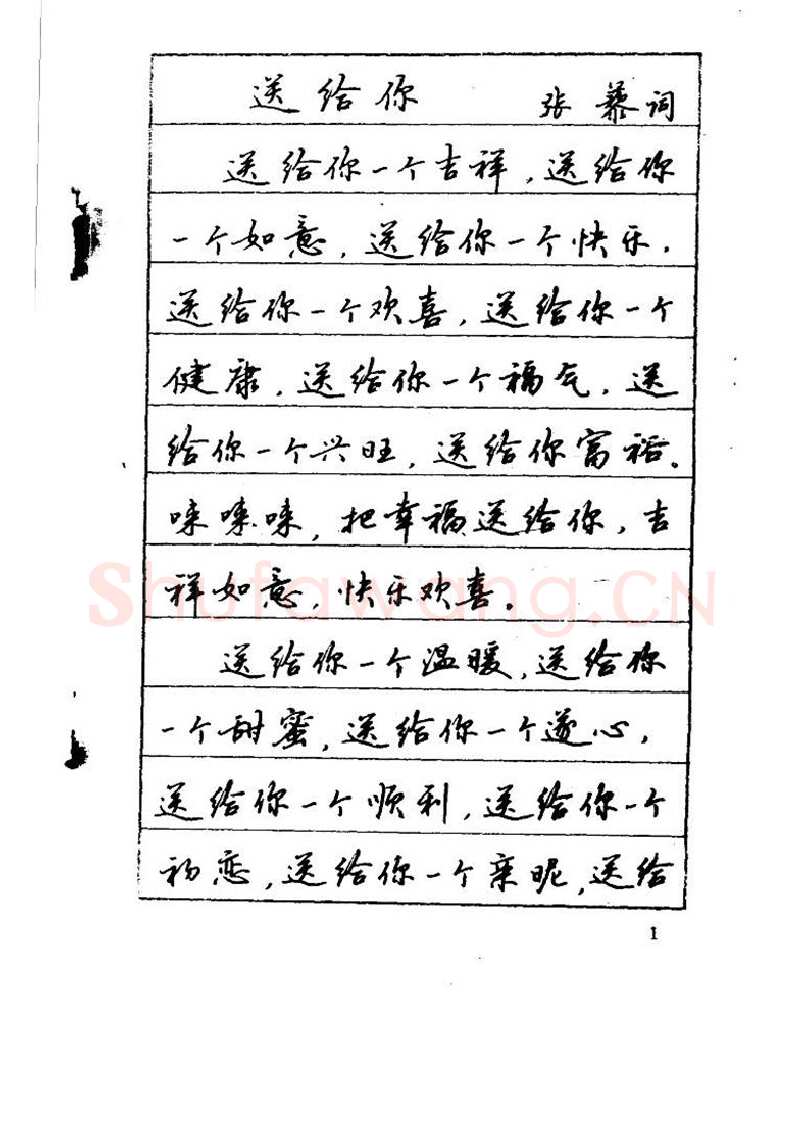 送给你 张藜词
送给你一个吉祥，送给你
一个如意，送给你一个快乐，
送给你一个欢喜，送给你一个
健康，送给你一个福气，送
给你一个兴旺，送给你富裕。
唻唻唻，把幸福送给你，吉
祥如意，快乐欢喜。
送给你一个温暖，送给你
一个甜蜜，送给你一个遂心，
送给你一个顺利，送给你一个
初恋，送给你一个亲昵，送给
1
Shufawang.CN